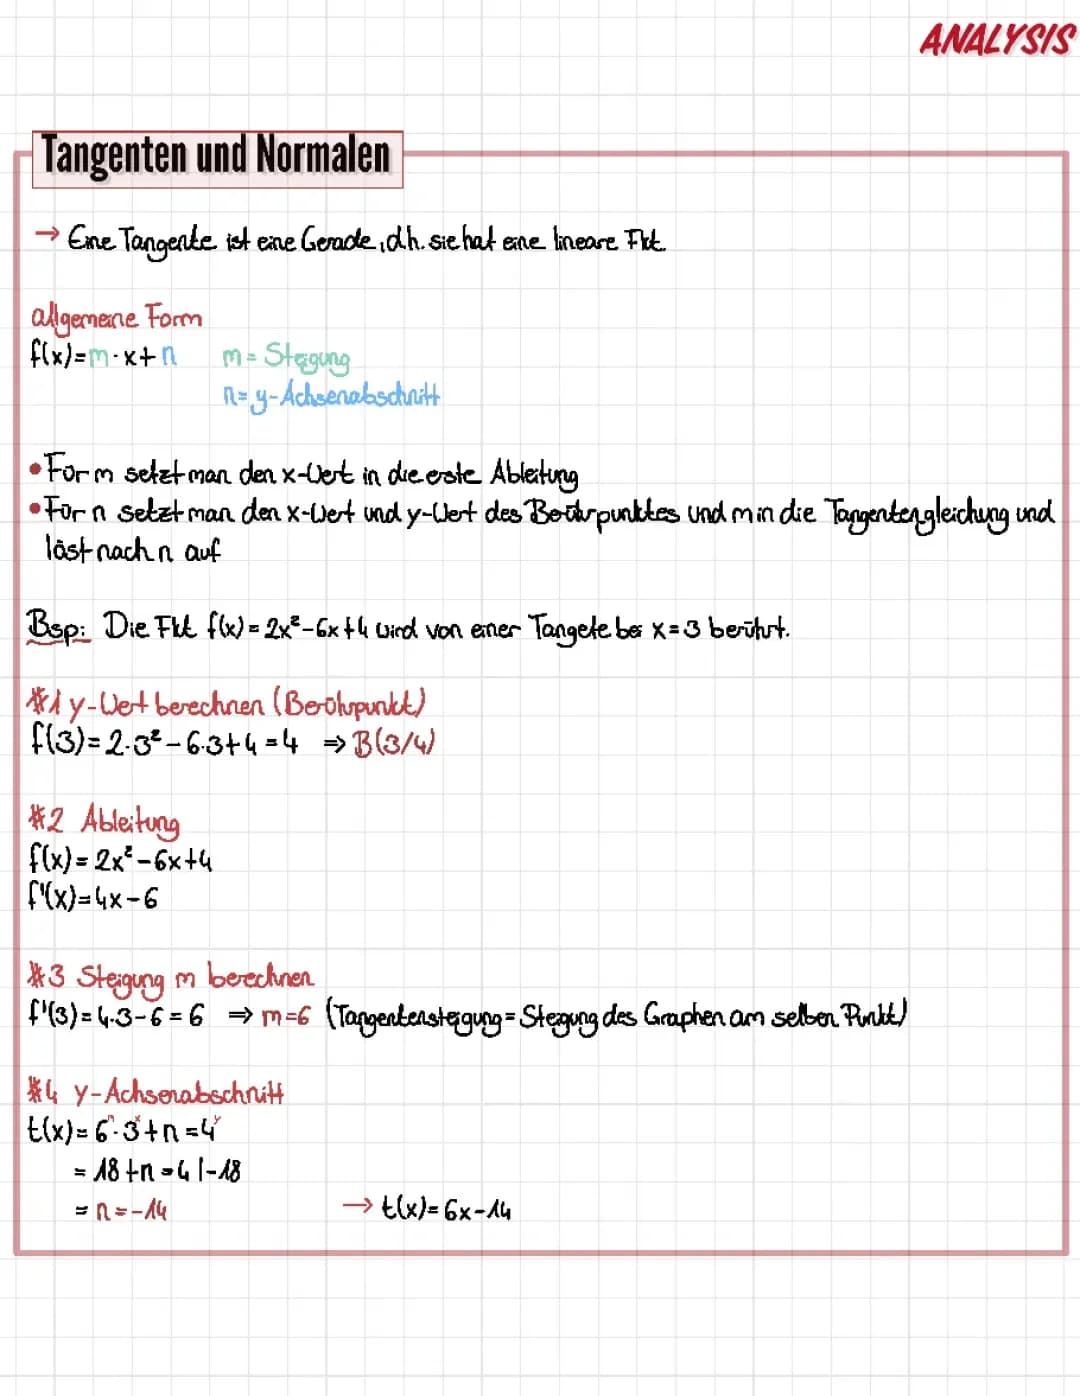 ANALYSIS
Tangenten und Normalen
→ Eine Tangente ist eine Gerade, d.h. sie hat eine lineare Fkt.
allgemeine Form
f(x)=m·x+n m = Steigung
n= y-Achsenabschnitt
• Für m setzt man den x-Wert in die erste Ableitung
• Für n setzt man den x-Wert und y-Wert des Berührpunktes und m in die Tangentengleichung und
löst nach n auf
Bsp: Die Fkt f(x) = 2x²-6x+4 wird von einer Tangete bei x=3 berührt.
#1 y-Wert berechnen (Berührpunkt)
f(3)= 2·3²-6·3+4=4 ⇒ B(3/4)
#2 Ableitung
f(x) = 2x²-6x+4
f'(x)=4x-6
#3 Steigung m berechnen
f'(3)=4·3-6=6 ⇒ m=6 (Tangentensteigung = Steigung des Graphen am selben Punkt)
#4 y-Achsenabschnitt
t(x)= 6·3+n=4
= 18+n=4 |-18
= n=-14 → t(x)=6x-14